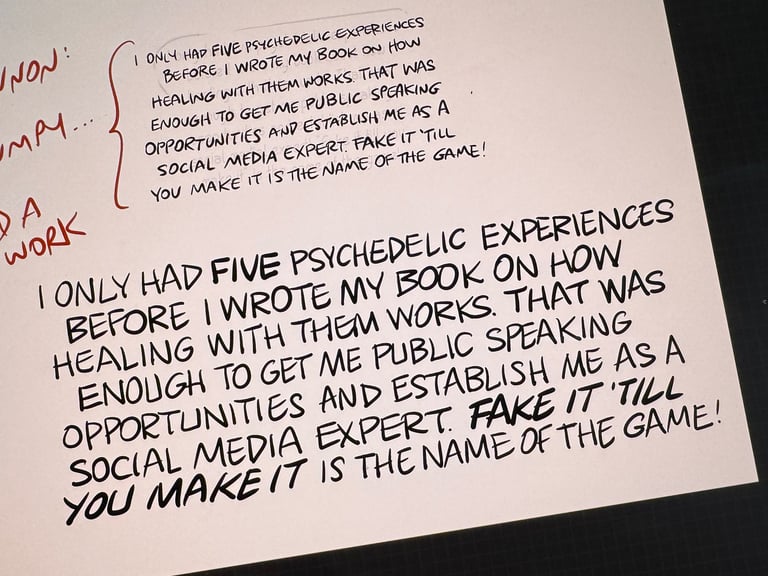 I ONLY HAD FIVE PSYCHEDELIC EXPERIENCES
BEFORE I WROTE MY BOOK ON HOW
HEALING WITH THEM WORKS. THAT WAS
ENOUGH TO GET ME PUBLIC SPEAKING
OPPORTUNITIES AND ESTABLISH ME AS A
SOCIAL MEDIA EXPERT. FAKE IT 'TILL
YOU MAKE IT IS THE NAME OF THE GAME!
A
WORK
I ONLY HAD FIVE PSYCHEDELIC EXPERIENCES
BEFORE I WROTE MY BOOK ON HOW
HEALING WITH THEM WORKS. THAT WAS
ENOUGH TO GET ME PUBLIC SPEAKING
OPPORTUNITIES AND ESTABLISH ME AS A
SOCIAL MEDIA EXPERT. FAKE IT 'TILL
YOU MAKE IT IS THE NAME OF THE GAME!